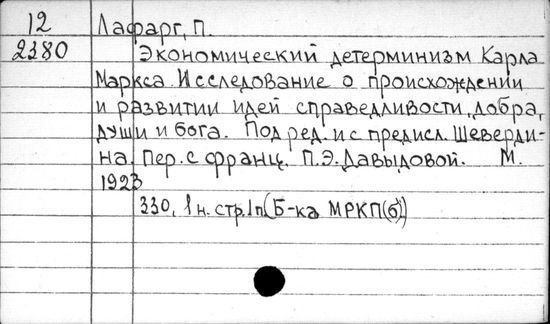 12 Лафарг, П.
2380 Экономический детерминизм Карла
Маркса. Исследование о происхождении
и развитии идей справедливости, добра,
души и бога. Под ред. и с предисл. Шеверди-
на. Пер. с франц. П.Э.Давыдовой. М.
1923
330, 1 н. стр. 1п(Б-ка МРКП(б))